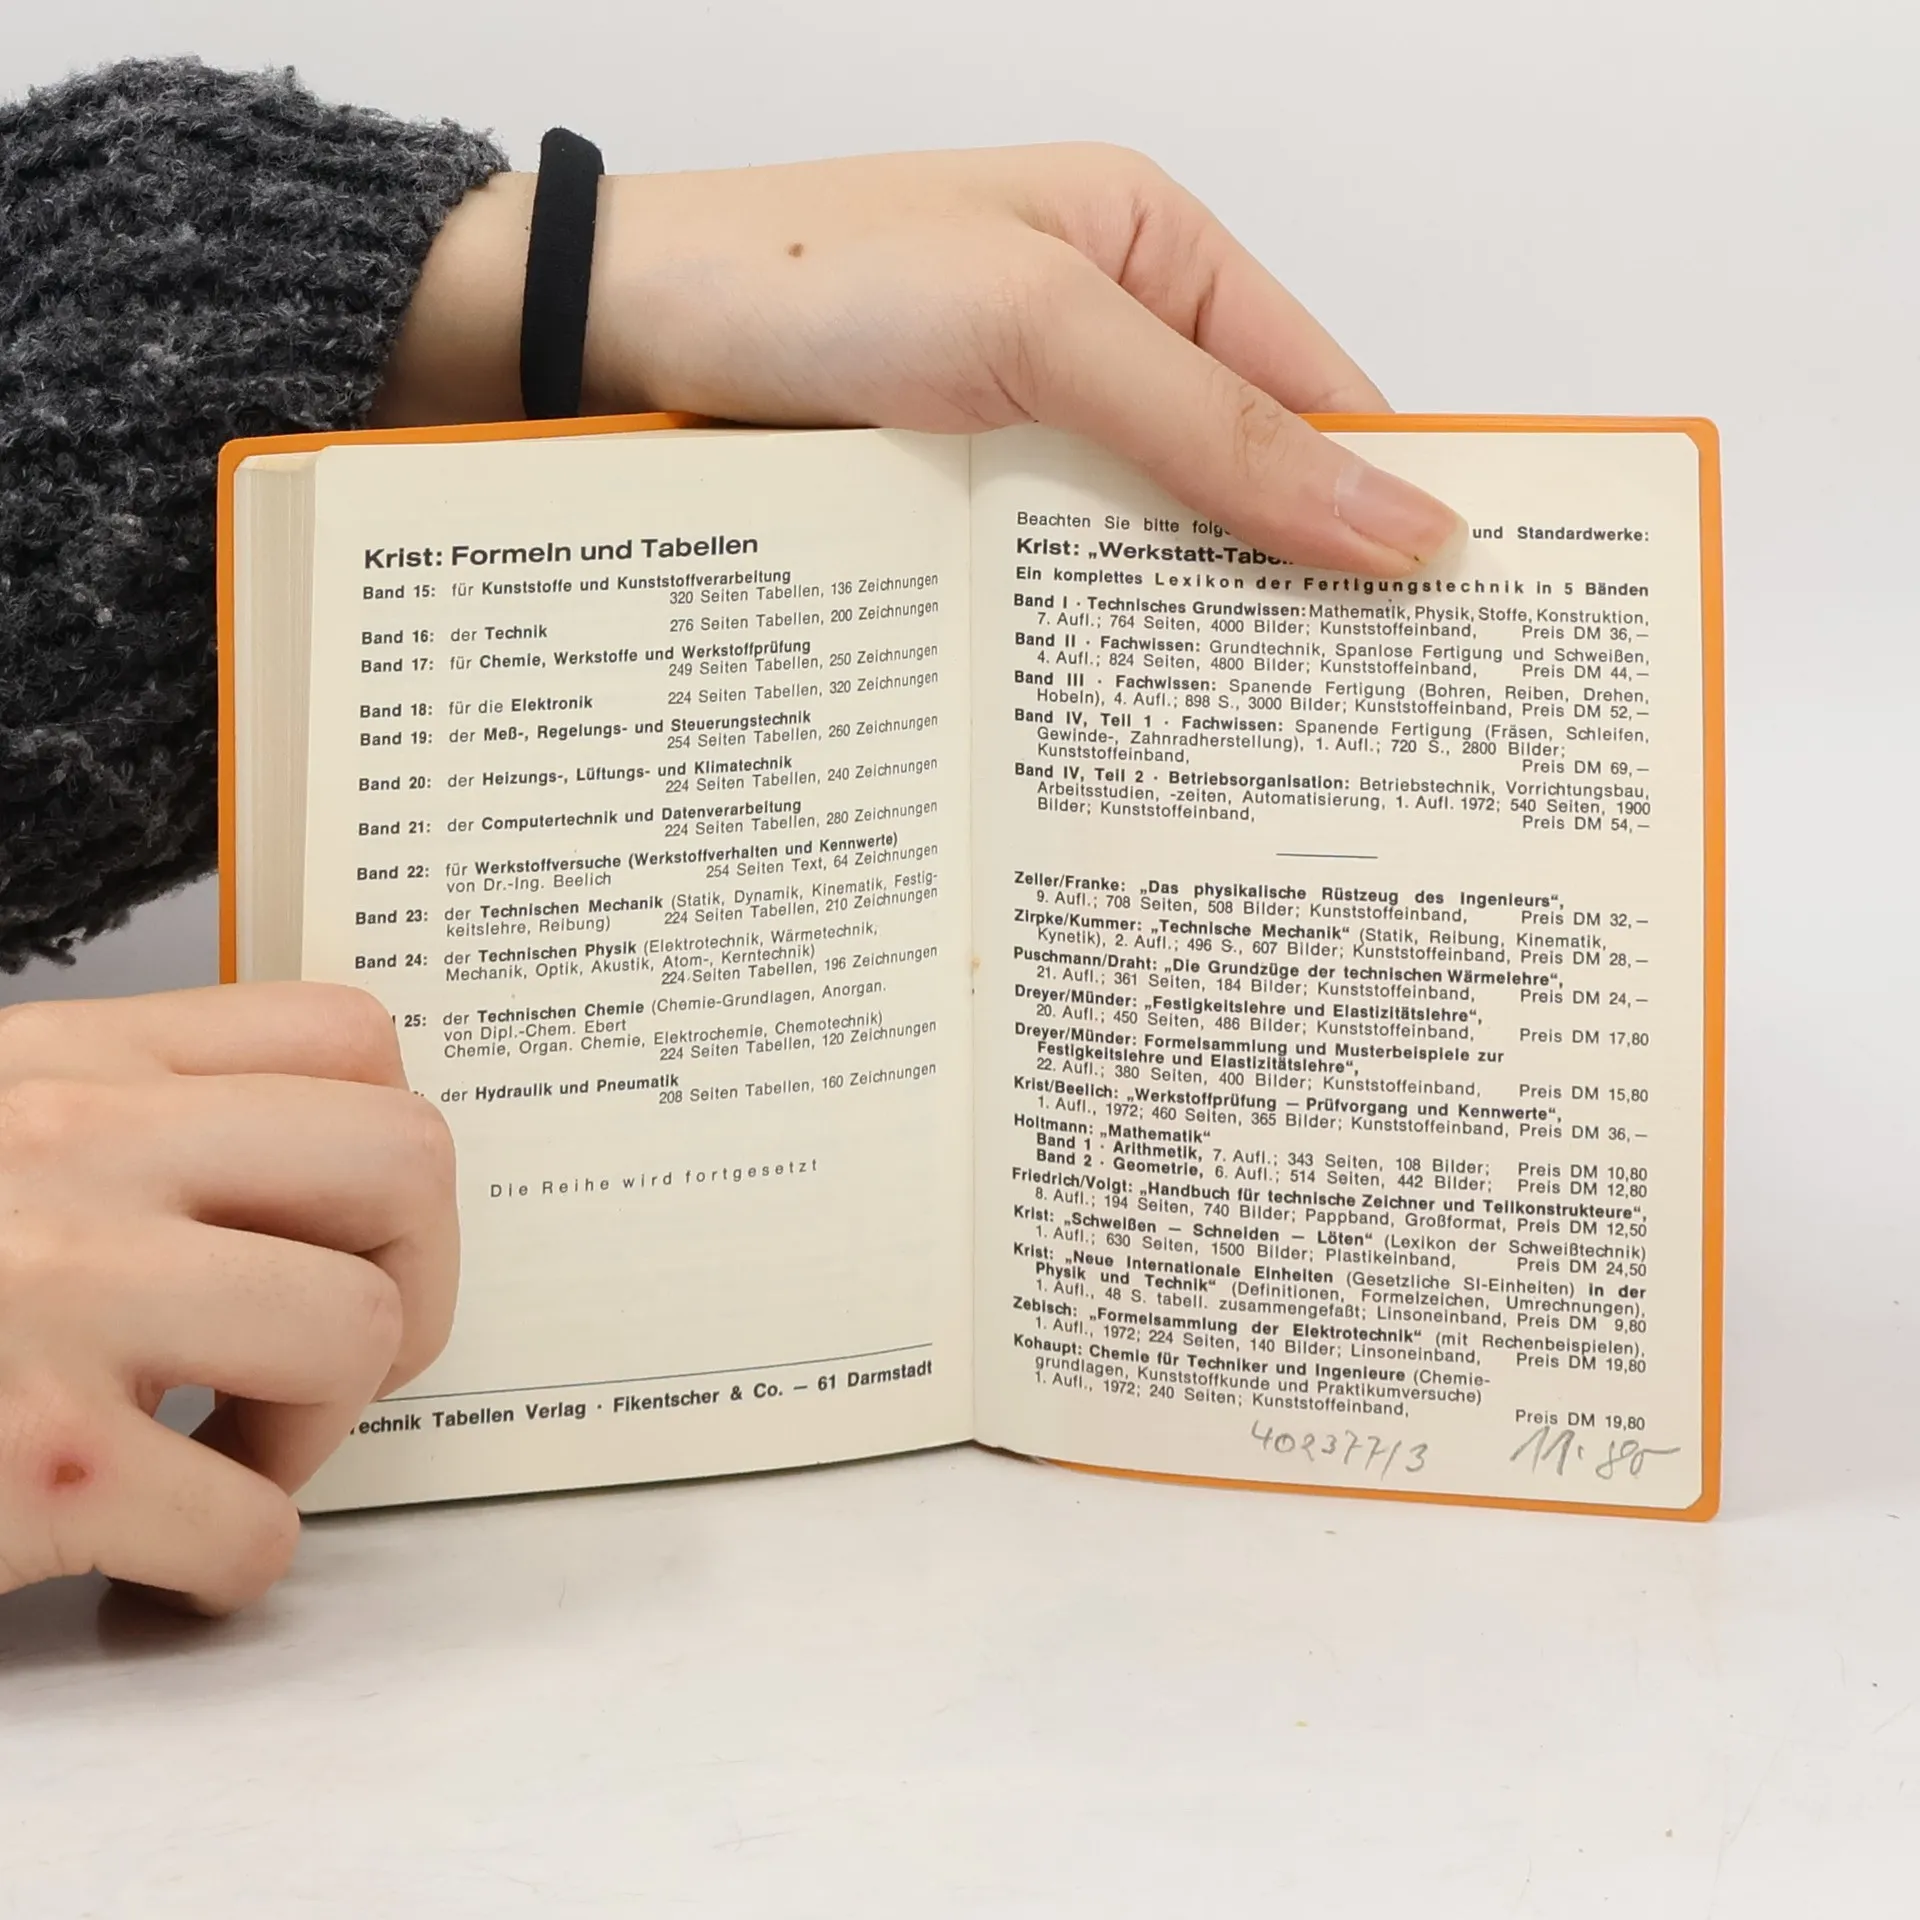 Krist: Formeln und Tabellen
Band 15: für Kunststoffe und Kunststoffverarbeitung
320 Seiten Tabellen, 136 Zeichnungen
Band 16: der Technik 276 Seiten Tabellen, 200 Zeichnungen
Band 17: für Chemie, Werkstoffe und Werkstoffprüfung
249 Seiten Tabellen, 250 Zeichnungen
Band 18: für die Elektronik 224 Seiten Tabellen, 320 Zeichnungen
Band 19: der Meß-, Regelungs- und Steuerungstechnik
254 Seiten Tabellen, 260 Zeichnungen
Band 20: der Heizungs-, Lüftungs- und Klimatechnik
224 Seiten Tabellen, 240 Zeichnungen
Band 21: der Computertechnik und Datenverarbeitung
224 Seiten Tabellen, 280 Zeichnungen
Band 22: für Werkstoffversuche (Werkstoffverhalten und Kennwerte)
von Dr.-Ing. Beelich 254 Seiten Text, 64 Zeichnungen
Band 23: der Technischen Mechanik (Statik, Dynamik, Kinematik, Festig-
keitslehre, Reibung) 224 Seiten Tabellen, 210 Zeichnungen
Band 24: der Technischen Physik (Elektrotechnik, Wärmetechnik,
Mechanik, Optik, Akustik, Atom-, Kerntechnik)
224 Seiten Tabellen, 196 Zeichnungen
25: der Technischen Chemie (Chemie-Grundlagen, Anorgan.
von Dipl.-Chem. Ebert
Chemie, Organ. Chemie, Elektrochemie, Chemotechnik)
224 Seiten Tabellen, 120 Zeichnungen
der Hydraulik und Pneumatik
208 Seiten Tabellen, 160 Zeichnungen
Die Reihe wird fortgesetzt
echnik Tabellen Verlag · Fikentscher & Co. — 61 Darmstadt
Beachten Sie bitte folg und Standardwerke:
Krist: „Werkstatt-Tabe
Ein komplettes Lexikon der Fertigungstechnik in 5 Bänden
Band I · Technisches Grundwissen: Mathematik, Physik, Stoffe, Konstruktion,
7. Aufl.; 764 Seiten, 4000 Bilder; Kunststoffeinband, Preis DM 36,—
Band II · Fachwissen: Grundtechnik, Spanlose Fertigung und Schweißen,
4. Aufl.; 824 Seiten, 4800 Bilder; Kunststoffeinband, Preis DM 44,—
Band III · Fachwissen: Spanende Fertigung (Bohren, Reiben, Drehen,
Hobeln), 4. Aufl.; 898 S., 3000 Bilder; Kunststoffeinband, Preis DM 52,—
Band IV, Teil 1 · Fachwissen: Spanende Fertigung (Fräsen, Schleifen,
Gewinde-, Zahnradherstellung), 1. Aufl.; 720 S., 2800 Bilder;
Kunststoffeinband, Preis DM 69,—
Band IV, Teil 2 · Betriebsorganisation: Betriebstechnik, Vorrichtungsbau,
Arbeitsstudien, -zeiten, Automatisierung, 1. Aufl. 1972; 540 Seiten, 1900
Bilder; Kunststoffeinband, Preis DM 54,—
Zeller/Franke: „Das physikalische Rüstzeug des Ingenieurs“,
9. Aufl.; 708 Seiten, 508 Bilder; Kunststoffeinband, Preis DM 32,—
Zirpke/Kummer: „Technische Mechanik“ (Statik, Reibung, Kinematik,
Kynetik), 2. Aufl.; 496 S., 607 Bilder; Kunststoffeinband, Preis DM 28,—
Puschmann/Draht: „Die Grundzüge der technischen Wärmelehre“,
21. Aufl.; 361 Seiten, 184 Bilder; Kunststoffeinband, Preis DM 24,—
Dreyer/Münder: „Festigkeitslehre und Elastizitätslehre“,
20. Aufl.; 450 Seiten, 486 Bilder; Kunststoffeinband, Preis DM 17,80
Dreyer/Münder: Formelsammlung und Musterbeispiele zur
Festigkeitslehre und Elastizitätslehre“,
22. Aufl.; 380 Seiten, 400 Bilder; Kunststoffeinband, Preis DM 15,80
Krist/Beelich: „Werkstoffprüfung — Prüfvorgang und Kennwerte“,
1. Aufl., 1972; 460 Seiten, 365 Bilder; Kunststoffeinband, Preis DM 36,—
Holtmann: „Mathematik“
Band 1 · Arithmetik, 7. Aufl.; 343 Seiten, 108 Bilder; Preis DM 10,80
Band 2 · Geometrie, 6. Aufl.; 514 Seiten, 442 Bilder; Preis DM 12,80
Friedrich/Volgt: „Handbuch für technische Zeichner und Teilkonstrukteure“,
8. Aufl.; 194 Seiten, 740 Bilder; Pappband, Großformat, Preis DM 12,50
Krist: „Schweißen — Schneiden — Löten“ (Lexikon der Schweißtechnik)
1. Aufl.; 630 Seiten, 1500 Bilder; Plastikeinband, Preis DM 24,50
Krist: „Neue Internationale Einheiten (Gesetzliche SI-Einheiten) in der
Physik und Technik“ (Definitionen, Formelzeichen, Umrechnungen),
1. Aufl., 48 S. tabell. zusammengefaßt; Linsoneinband, Preis DM 9,80
Zebisch: „Formelsammlung der Elektrotechnik“ (mit Rechenbeispielen),
1. Aufl., 1972; 224 Seiten, 140 Bilder; Linsoneinband, Preis DM 19,80
Kohaupt: Chemie für Techniker und Ingenieure (Chemie-
grundlagen, Kunststoffkunde und Praktikumversuche)
1. Aufl., 1972; 240 Seiten; Kunststoffeinband, Preis DM 19,80
402377/3